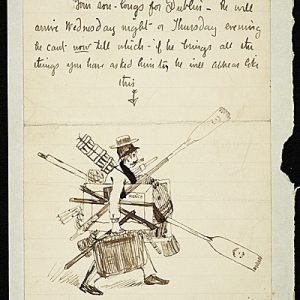 Your son - longs for Dublin - He will
arrive Wednesday night - or Thursday evening
he can't now tell which - if he brings all the
things you have asked him to he will appear like
this